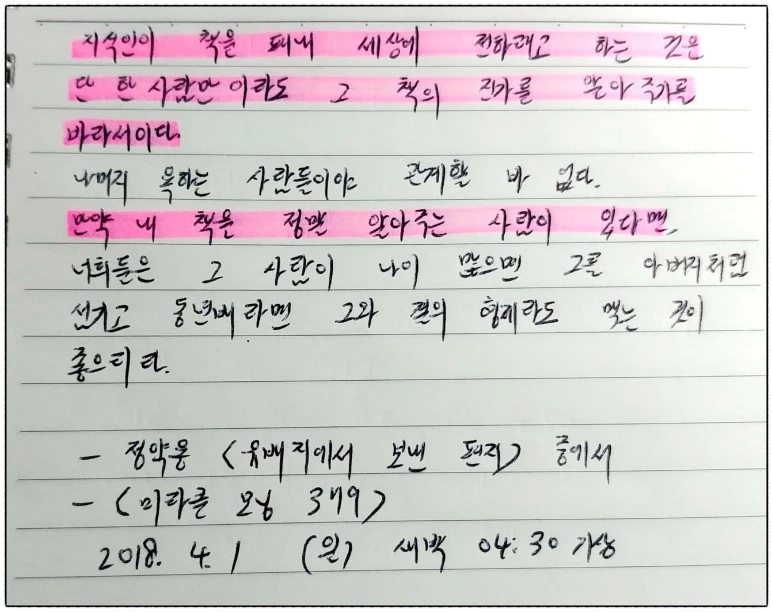 지식인이 책을 펴내 세상에 전하려고 하는 것은
단 한 사람만이라도 그 책의 진가를 알아주기를
바라서이다.
나머지 욕하는 사람들이야 관계할 바 없다.
만약 내 책을 정말 알아주는 사람이 있다면,
너희들은 그 사람이 나이 많으면 그를 아버지처럼
섬기고 동년배라면 그와 결의 형제라도 맺는 것이
좋으리라.
- 정약용 <유배지에서 보낸 편지> 중에서
- <미라클 모닝 379>
2018. 4. 1 (일) 새벽 04:30 기상